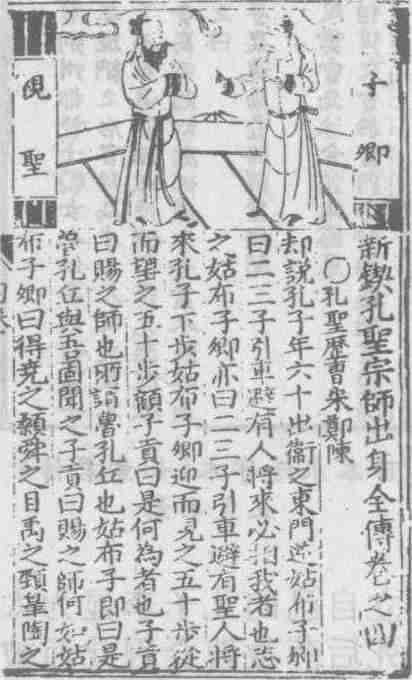 子卿
覌聖
新鍥孔聖宗師出身全傳卷之四
〇孔聖歷曹宋鄭陳
却說孔子年六十出衛之東門逆姑布子卿
曰二三子引車避有人將來必相我者也志
之姑布子卿亦曰二三子引車避有聖人將
來孔子下步姑布子卿迎而見之五十步從
而望之五十步顧子貢曰是何為者也子貢
曰賜之師也所謂魯孔丘也姑布子卽曰是
孔丘與吾聞之子貢曰賜之師何如姑
布子卿曰得堯之顙舜之目禹之頸皐陶之